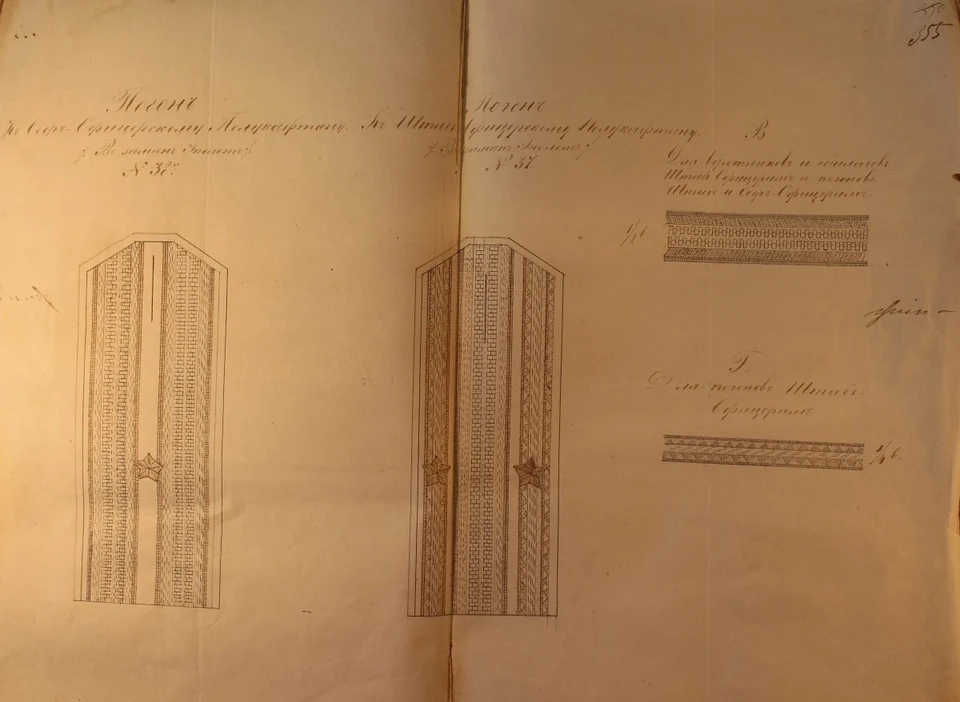 355
Погонъ
Къ Оберъ-Офицерскому Полукафтану.
/ Въ замѣнъ Эполетъ /
№ 38
Погонъ
Къ Штабъ Офицерскому Полукафтану.
/ Въ замѣнъ Эполетъ /
№ 37
В
Для воротниковъ и
Штабъ Офицерамъ и погоновъ
Штабъ и Оберъ-Офицерамъ.
1/2 в.
Г.
Для погоновъ Штабъ-
Офицерамъ
1/4 в.